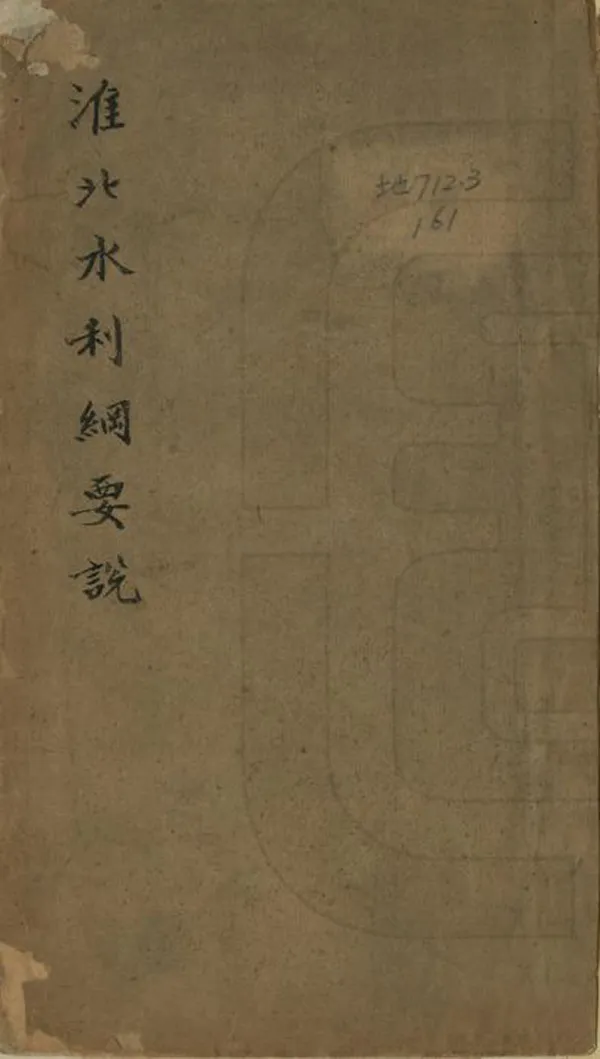 淮北水利綱要說
地712.3
161